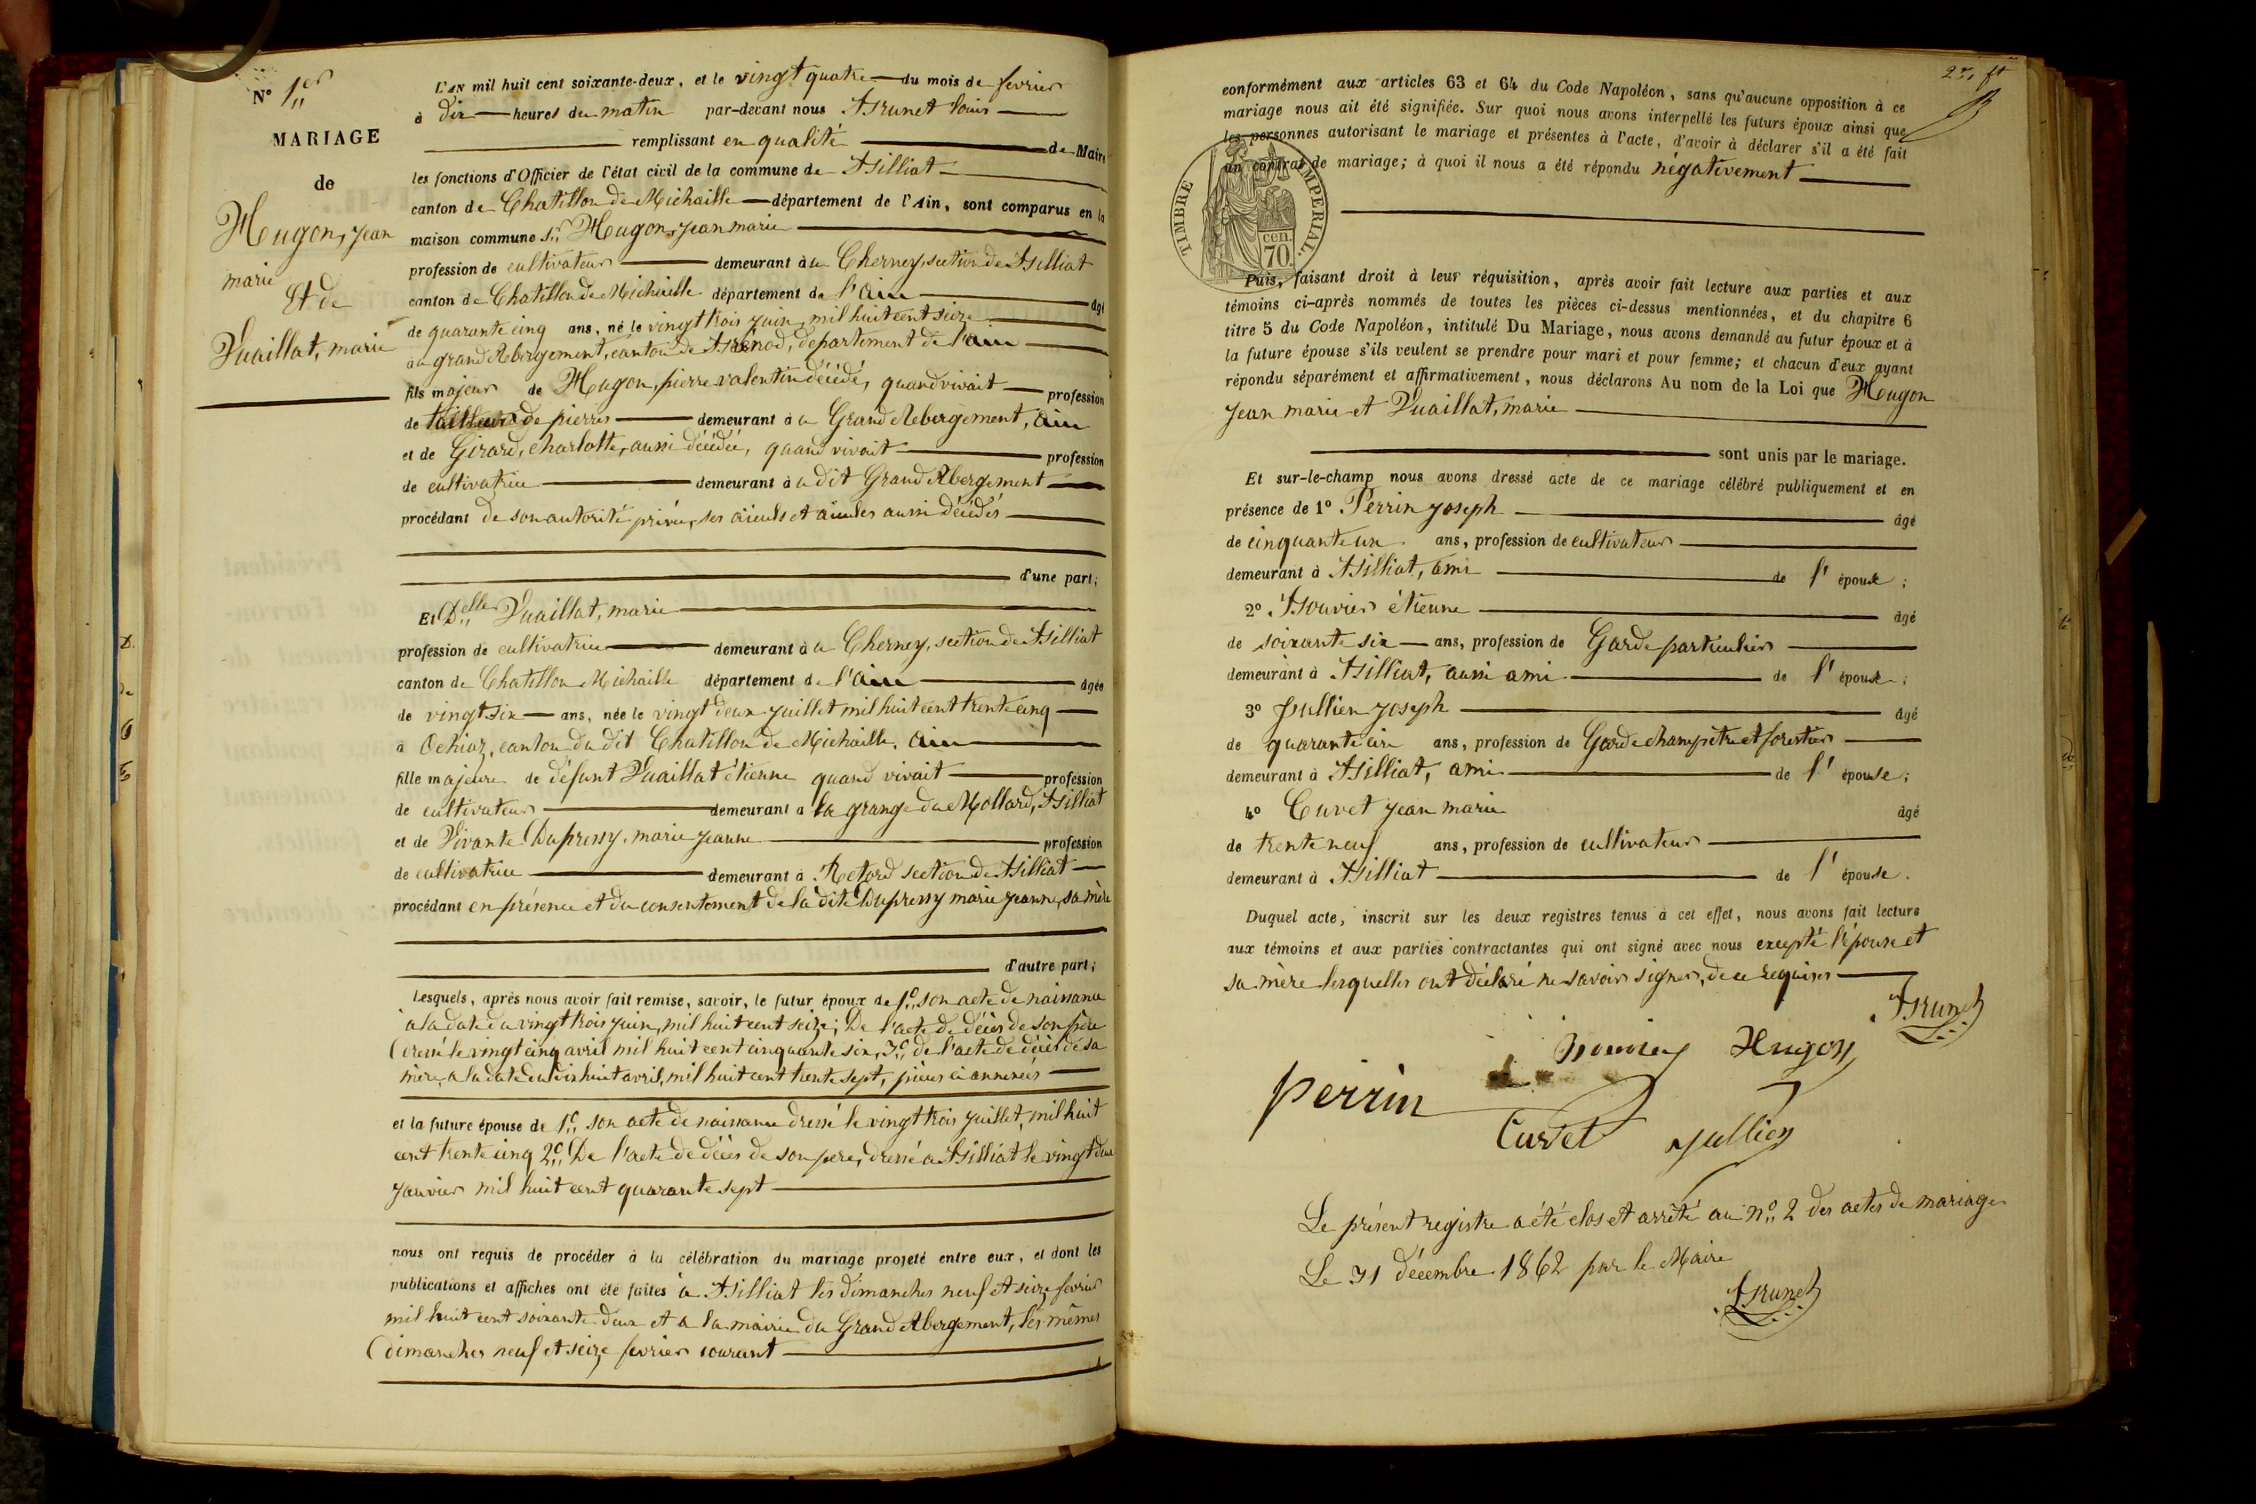 N° 1er
MARIAGE
de
Hugon, jean
marie
Et de
Vuaillat, marie
L'AN mil huit cent soixante-deux, et le vingt quatre du mois de fevrier
à dix heures du matin par-devant nous Brunet louis
remplissant en qualité de Maire
les fonctions d'Officier de l'état civil de la commune de Billiat
canton de Chatillon de Michaille département de l'Ain, sont comparus en la
maison commune Sr Hugon, jean marie
profession de cultivateur demeurant à a Cherney, section de Billiat
canton de Chatillon de Michaille département de l'ain âgé
de quarante cinq ans, né le vingt trois juin, mil huit cent seize
au grand Abergement, canton de Brénod, département de l'ain
fils majeur de Hugon, pierre valentin décédé, quand vivait profession
de tailleur de pierres demeurant à a Grand Abergement, ain
et de Girard, charlotte, aussi décédée, quand vivait profession
de cultivatrice demeurant à a dit Grand Abergement
procédant de son autorité privée, ses aïeuls et aïeules aussi décédés
d'une part;
Et Delle Vuaillat, marie
profession de cultivatrice demeurant à a Cherney, section de Billiat
canton de Chatillon Michaille département de l'ain âgée
de vingt six ans, née le vingt deux juillet mil huit cent trente cinq
à Ochiaz, canton du dit Chatillon de Michaille, ain
fille majeure de défunt Vuaillat étienne quand vivait profession
de cultivateur demeurant a la grange du Mollard, Billiat
et de Vivante Dupressy, marie jeanne profession
de cultivatrice demeurant à Retord section de Billiat
procédant en présence et du consentement de la dite Dupressy marie jeanne, sa mère
d'autre part;
Lesquels, après nous avoir fait remise, savoir, le futur époux de 1° son acte de naissance
a la date du vingt trois juin, mil huit cent seize; De l'acte de décès de son père
dressé le vingt cinq avril mil huit cent cinquante six, 3° de l'acte de décès de sa
mère, a la date du dix huit avril, mil huit cent trente sept, pièces ci annexées
et la future épouse de 1° son acte de naissance dressé le vingt trois juillet, mil huit
cent trente cinq 2° De l'acte de décès de son père, dressé a Billiat le vingt deux
janvier mil huit cent quarante sept
nous ont requis de procéder à la célébration du mariage projeté entre eux, et dont les
publications et affiches ont été faites à Billiat les dimanches neuf et seize fevrier
mil huit cent soixante deux et a la mairie du Grand Abergement, les mêmes
dimanches neuf et seize fevrier courant
2e ft
conformément aux articles 63 et 64 du Code Napoléon, sans qu'aucune opposition à ce
mariage nous ait été signifiée. Sur quoi nous avons interpellé les futurs époux ainsi que
les personnes autorisant le mariage et présentes à l'acte, d'avoir à déclarer s'il a été fait
un contrat de mariage; à quoi il nous a été répondu négativement
TIMBRE IMPERIAL
cen.
70.
Puis, faisant droit à leur réquisition, après avoir fait lecture aux parties et aux
témoins ci-après nommés de toutes les pièces ci-dessus mentionnées, et du chapitre 6
titre 5 du Code Napoléon, intitulé Du Mariage, nous avons demandé au futur époux et à
la future épouse s'ils veulent se prendre pour mari et pour femme; et chacun d'eux ayant
répondu séparément et affirmativement, nous déclarons Au nom de la Loi que Hugon
jean marie et Vuaillat, marie
sont unis par le mariage.
Et sur-le-champ nous avons dressé acte de ce mariage célébré publiquement et en
présence de 1° Perrin joseph âgé
de cinquante un ans, profession de cultivateur
demeurant à Billiat, ami de l'épouse;
2° Bouvier étienne âgé
de soixante six ans, profession de Garde particulier
demeurant à Billiat, aussi ami de l'épouse;
3° Jullien joseph âgé
de quarante ans, profession de Garde champêtre et forestier
demeurant à Billiat, ami de l'épouse;
4° Cuvet jean marie âgé
de trente neuf ans, profession de cultivateur
demeurant à Billiat de l'épouse.
Duquel acte, inscrit sur les deux registres tenus à cet effet, nous avons fait lecture
aux témoins et aux parties contractantes qui ont signé avec nous excepté l'épouse et
sa mère lesquelles ont déclaré ne savoir signer, de ce requises
Brunet
Bouvier Hugon
perrin
Curvet jullien
Le présent registre a été clos et arrêté au n° 2 des actes de mariage
Le 31 décembre 1862 par le Maire
Brunet